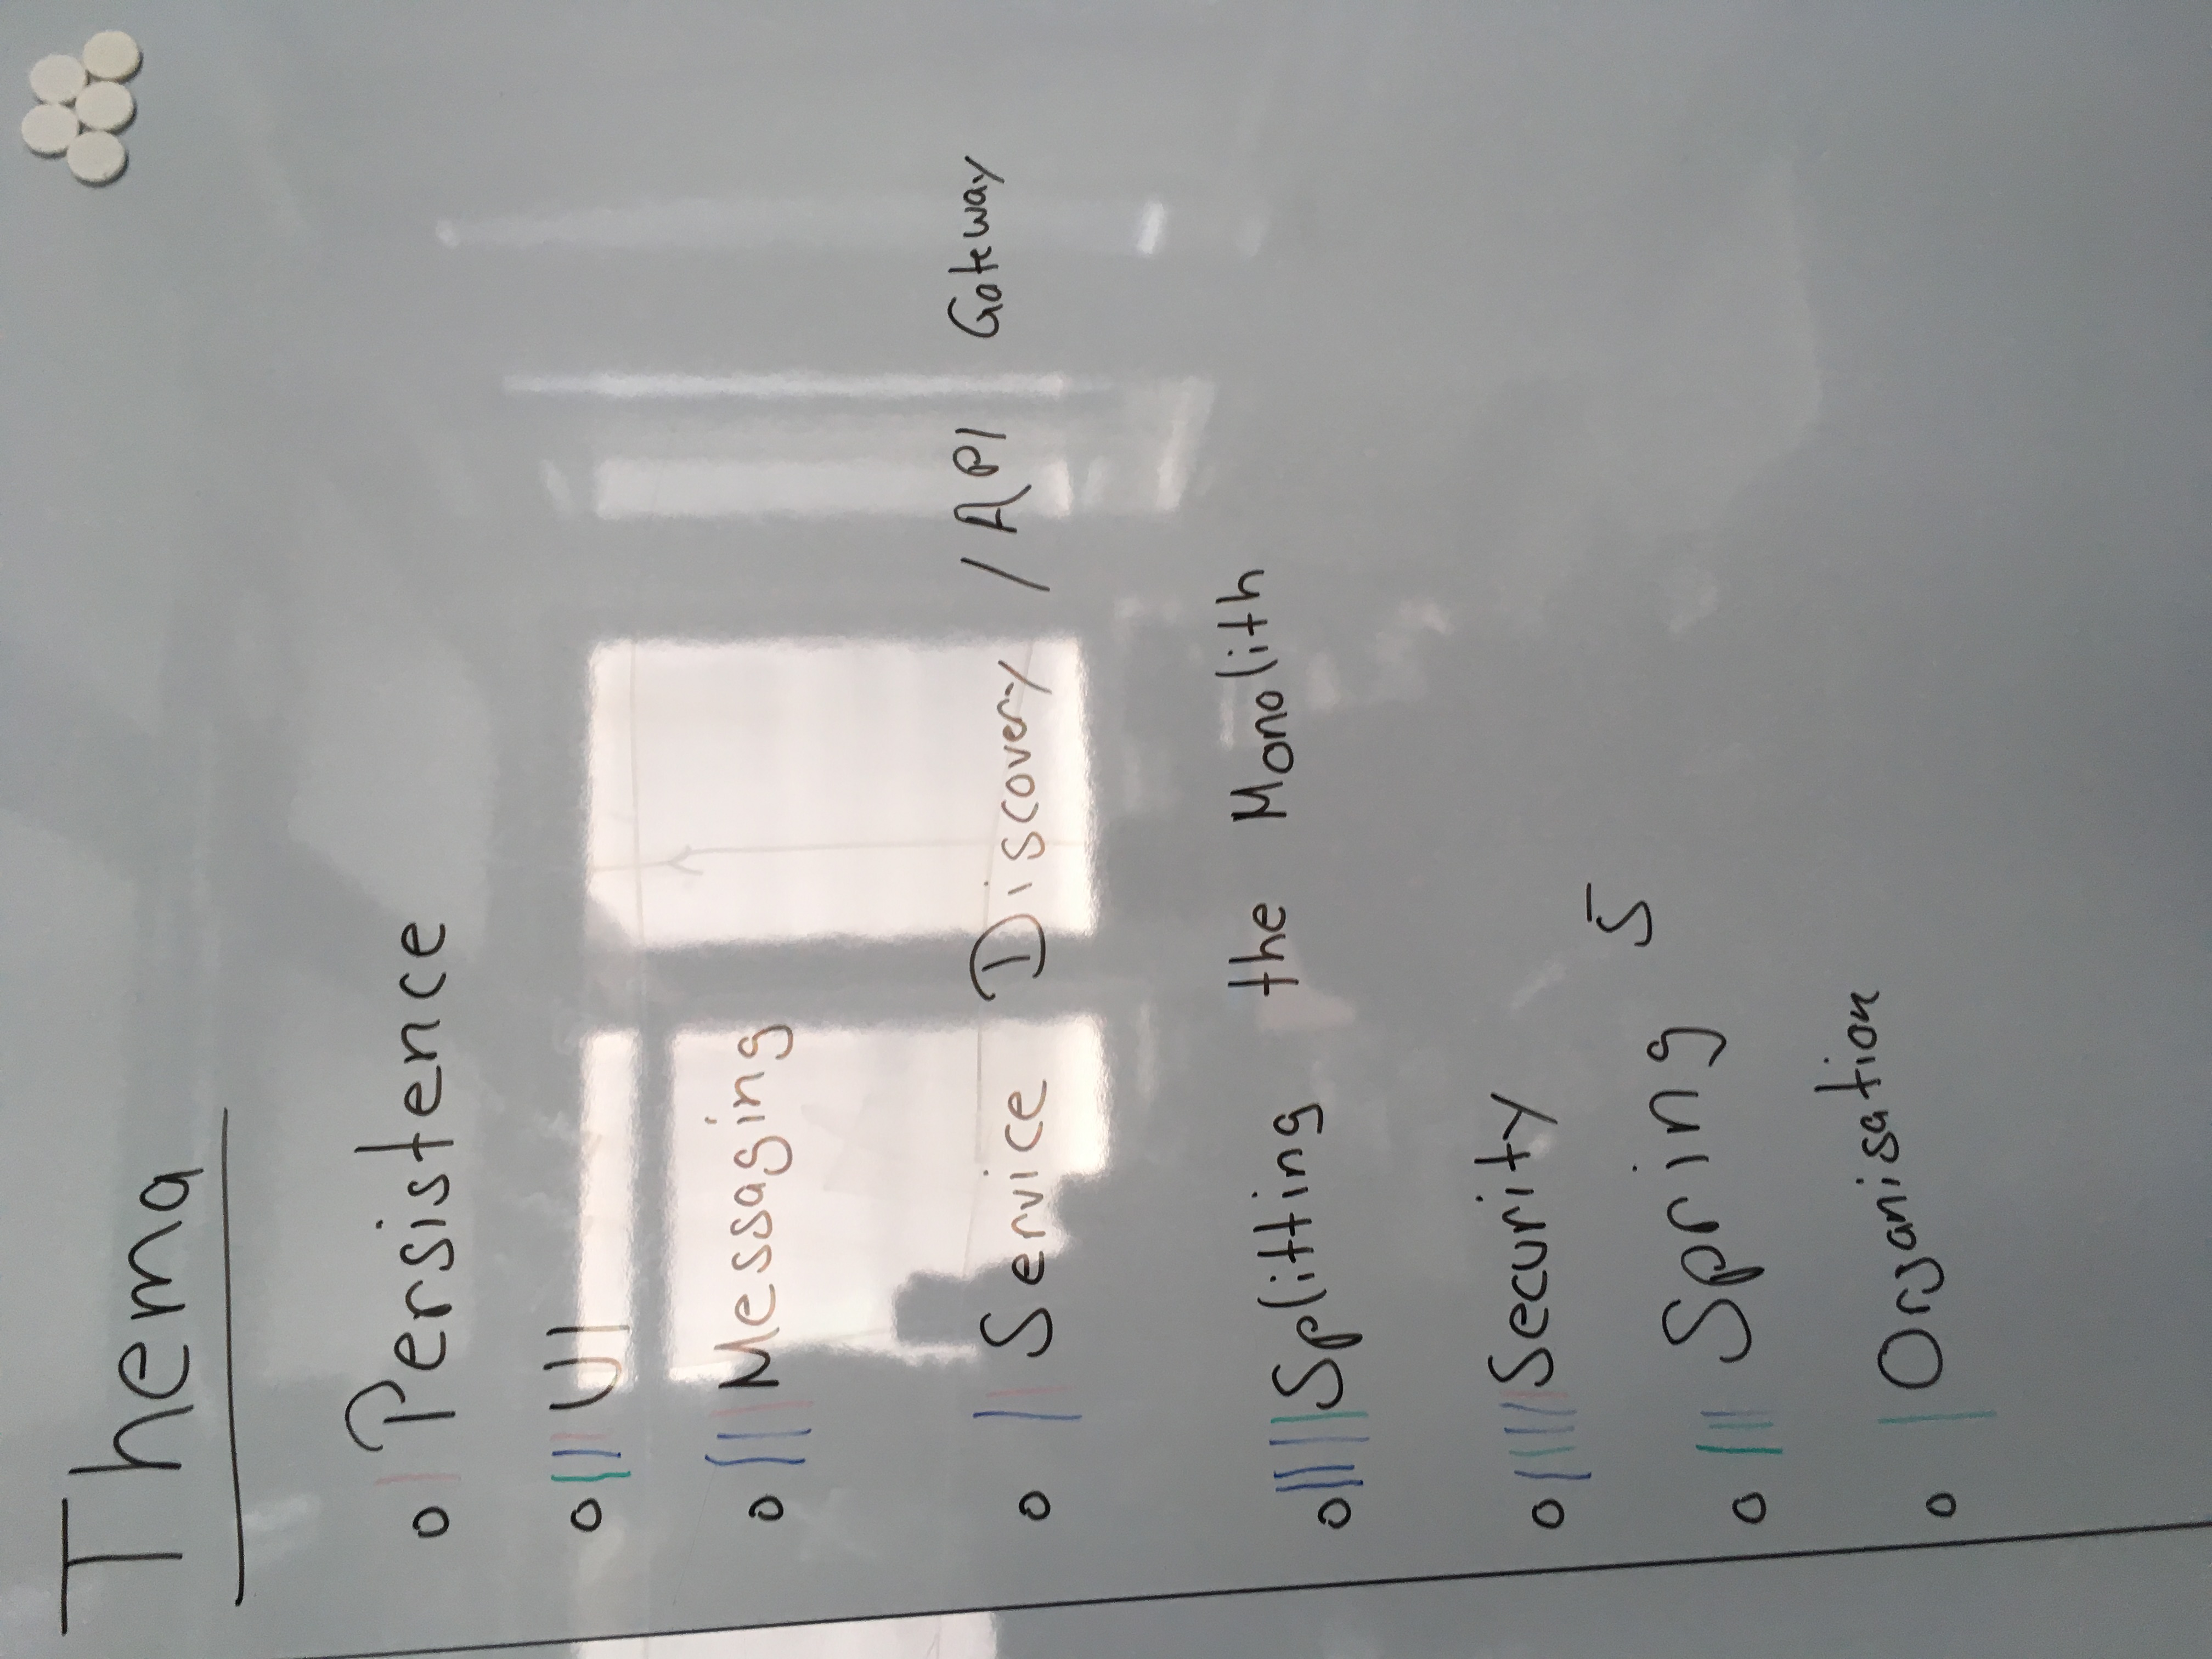 Thema
o | Persistence
o ||| UI
o ||| Messaging
o || Service Discovery / API Gateway
o |||| Splitting the Monolith
o |||||| Security
o ||| Spring 5
o | Organisation